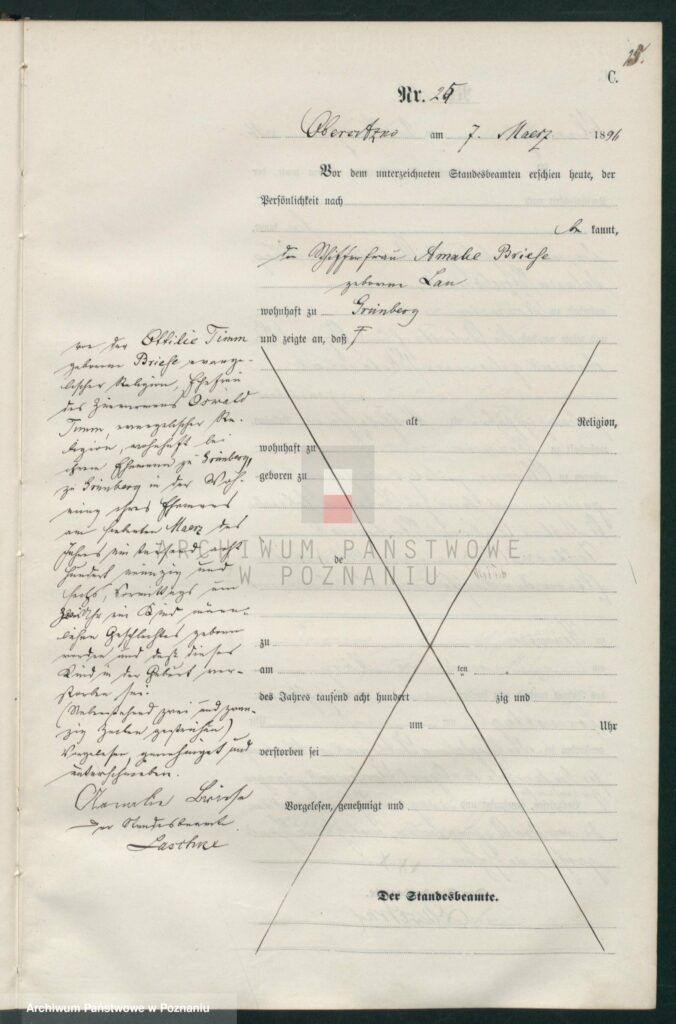 C.
Nr. 25
Obersitzko am 7. Maerz 1896
Vor dem unterzeichneten Standesbeamten erschien heute, der
Persönlichkeit nach
be kannt,
die Schifferfrau Amalie Briese
geborene Lau
wohnhaft zu Grünberg
und zeigte an, daß
von der Ottilie Timm
geborenen Briese evange-
lischer Religion, Ehefrau
des Oswald
Timm, evangelischer Re-
ligion, wohnhaft bei
ihrem Ehemann zu Grünberg,
zu Grünberg in der Woh-
nung ihres Ehemannes
am siebenten Maerz des
Jahres ein tausend acht
hundert neunzig und
sechs, Vormittags um
Uhr ein Kind männ-
lichen Geschlechtes geboren
worden und daß dieses
Kind in der Geburt ver-
storben sei.
(Nebenstehend zwei und zwan-
zig Zeilen gestrichen)
Vorgelesen, genehmigt und
unterschrieben.
Amalie Briese
Der Standesbeamte.
Laschke
alt Religion,
wohnhaft zu
geboren zu
de
zu
am ten
des Jahres tausend acht hundert zig und
um Uhr
verstorben sei
Vorgelesen, genehmigt und
Der Standesbeamte.
ARCHIWUM PAŃSTWOWE
W POZNANIU
Archiwum Państwowe w Poznaniu